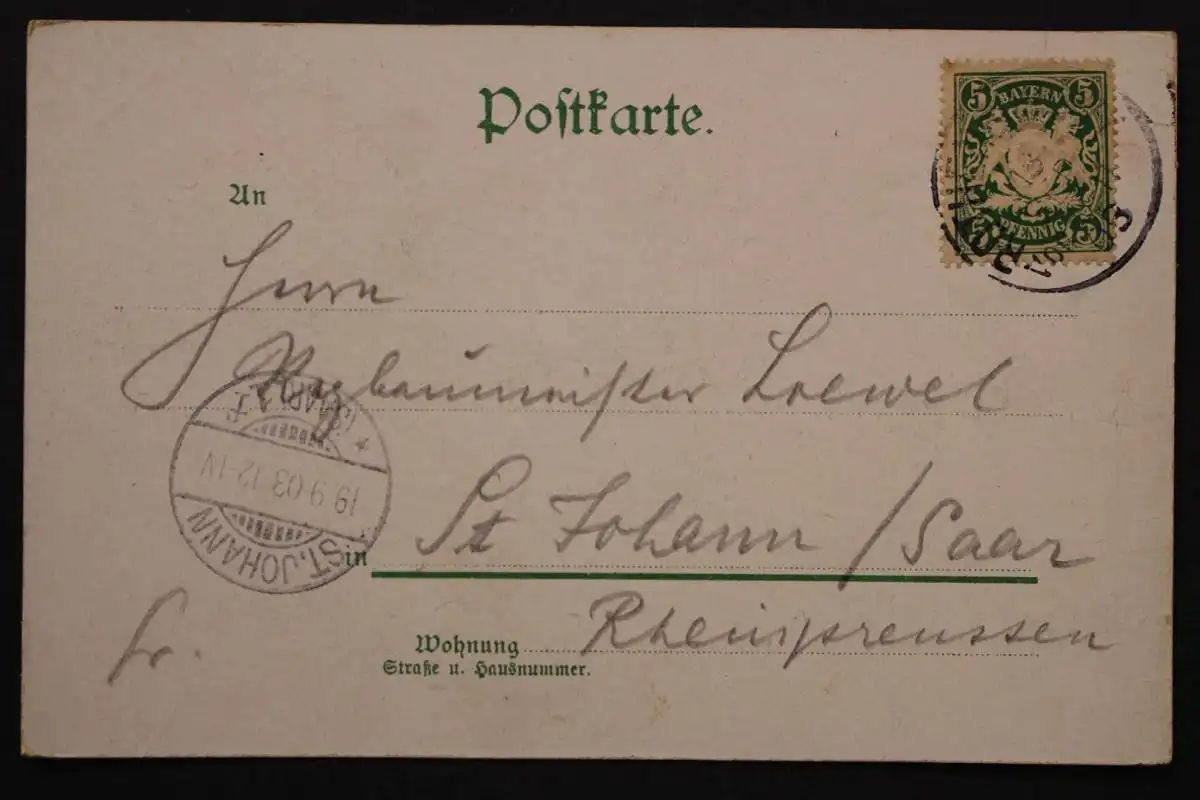 Postkarte.
5 BAYERN 5
5 PFENNIG 5
An
Herrn
Regbaumeister Loewel
in St Johann / Saar
Fr.
Wohnung Rheinpreussen
Straße u. Hausnummer.
ST. JOHANN
19 9 03 12-1V
* (SAAR) 1 f